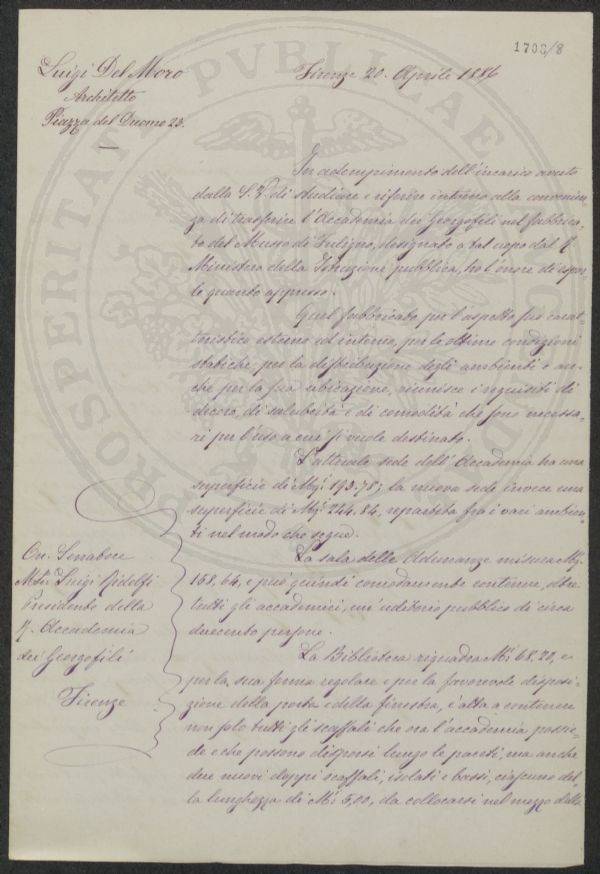 1703/8
Luigi Del Moro
Architetto
Piazza del Duomo 23.
Firenze 20. Aprile 1886
In adempimento dell'incarico avuto
dalla S. V. di studiare e riferire intorno alla convenien-
za di trasferire l'Accademia dei Georgofili nel fabbrica-
to del Museo di Fuligno, designato a tal uopo dal R.
Ministero della Istruzione pubblica, ho l'onore di espor-
le quanto appresso.
Quel fabbricato per l'aspetto suo carat-
teristico esterno ed interno, per le ottime condizioni
statiche, per la distribuzione degli ambienti e an-
che per la sua ubicazione, riunisce i requisiti di
decoro, di salubrità e di comodità che sono necessa-
ri per l'uso a cui si vuole destinato.
L'attuale sede dell'Accademia ha una
superficie di Mq. 193.78; la nuova sede invece una
superficie di Mq. 244.84, repartita fra i vari ambien-
ti nel modo che segue.
La sala delle Adunanze misura Mq.
158,64, e può quindi comodamente contenere, oltre
tutti gli accademici, un'uditorio pubblico di circa
duecento persone.
La Biblioteca riquadra M. 68.20, e
per la sua forma regolare e per la favorevole disposi-
zione della porta e della finestra, è atta a contenere
non solo tutti gli scaffali che ora l'accademia possie-
de e che possono disporsi lungo le pareti, ma anche
due nuovi doppi scaffali, isolati e bassi, ciascuno del-
la lunghezza di M. 5,00, da collocarsi nel mezzo della
On. Senatore
M.se Luigi Ridolfi
Presidente della
R. Accademia
dei Georgofili
Firenze
PROSPERITATI PVBLICAE